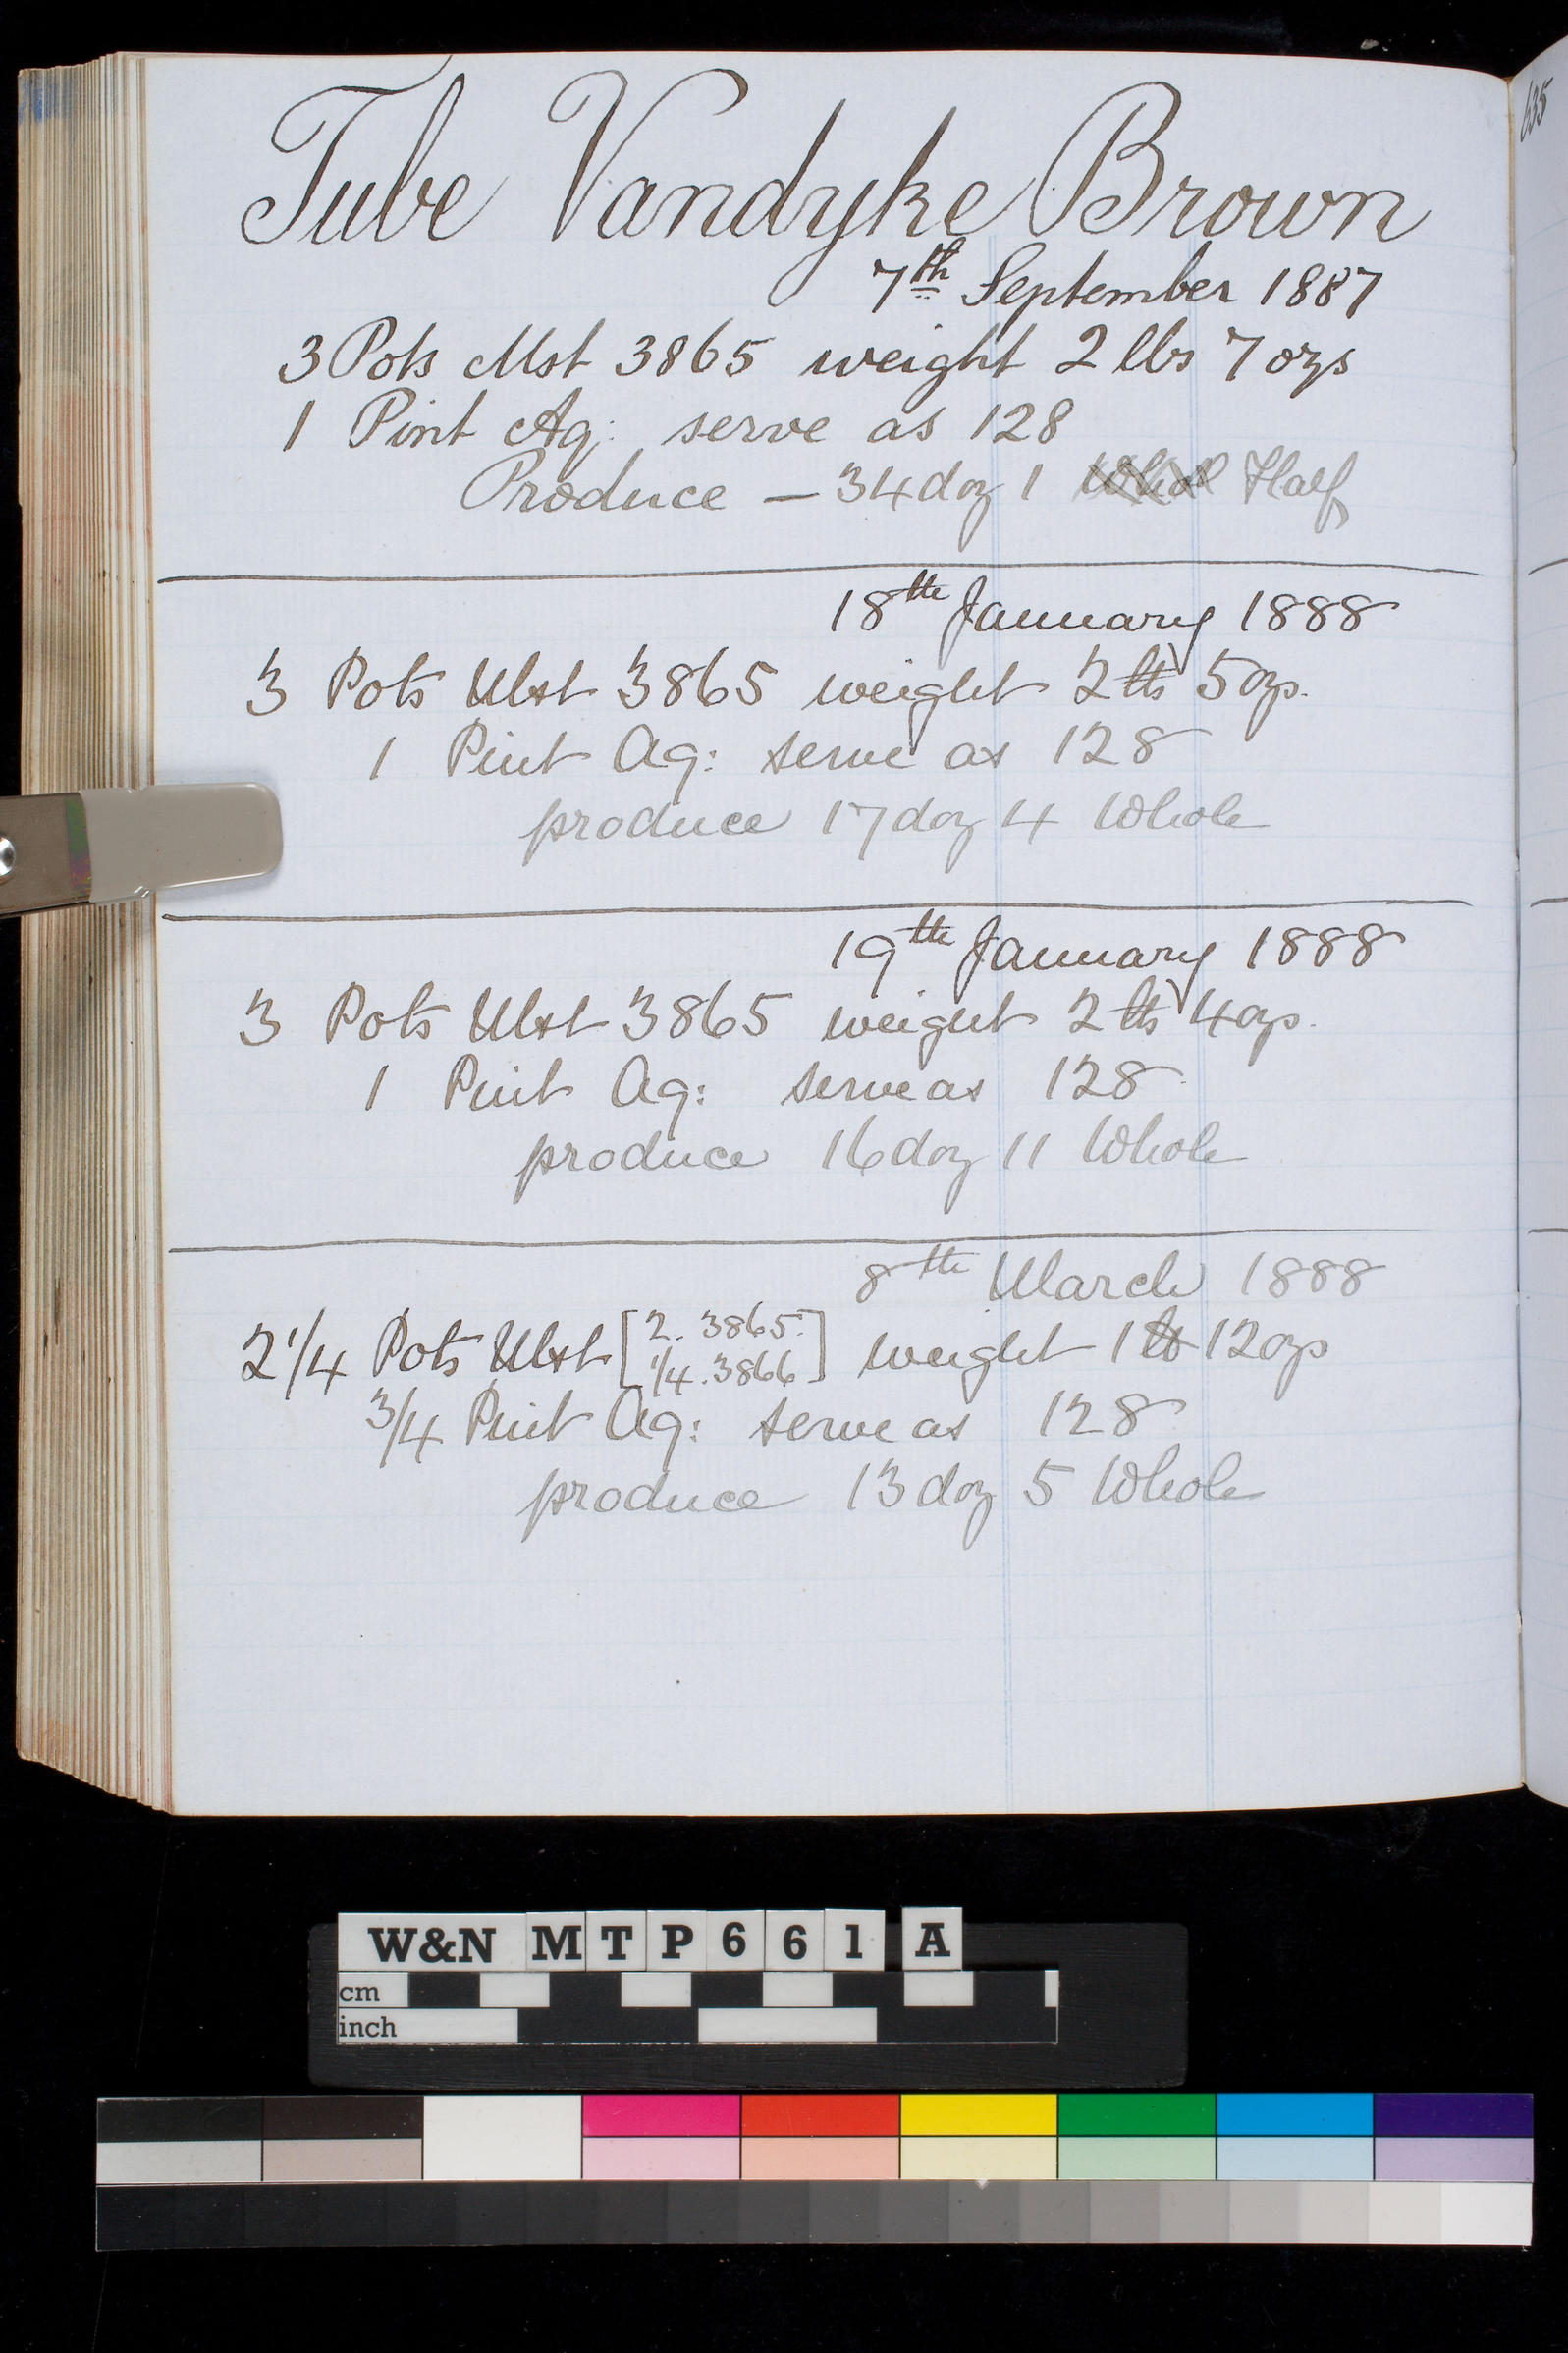 Tube Vandyke Brown
7th September 1887
3 Pots Mst 3865 weight 2 lbs 7 ozs
1 Pint Aq: serve as 128
Produce — 34 doz 1 Whol Half
18th January 1888
3 Pots Mst 3865 weight 2 lbs 5 ozs.
1 Pint Aq: serve as 128
produce 17 doz 4 Whole
19th January 1888
3 Pots Mst 3865 weight 2 lbs 4 ozs.
1 Pint Aq: serve as 128
produce 16 doz 11 Whole
8th March 1888
2 1/4 Pots Mst [2. 3865. 1/4. 3866] weight 1 lb 12 ozs
3/4 Pint Aq: serve as 128
produce 13 doz 5 Whole
635
W&N MTP661 A
cm
inch